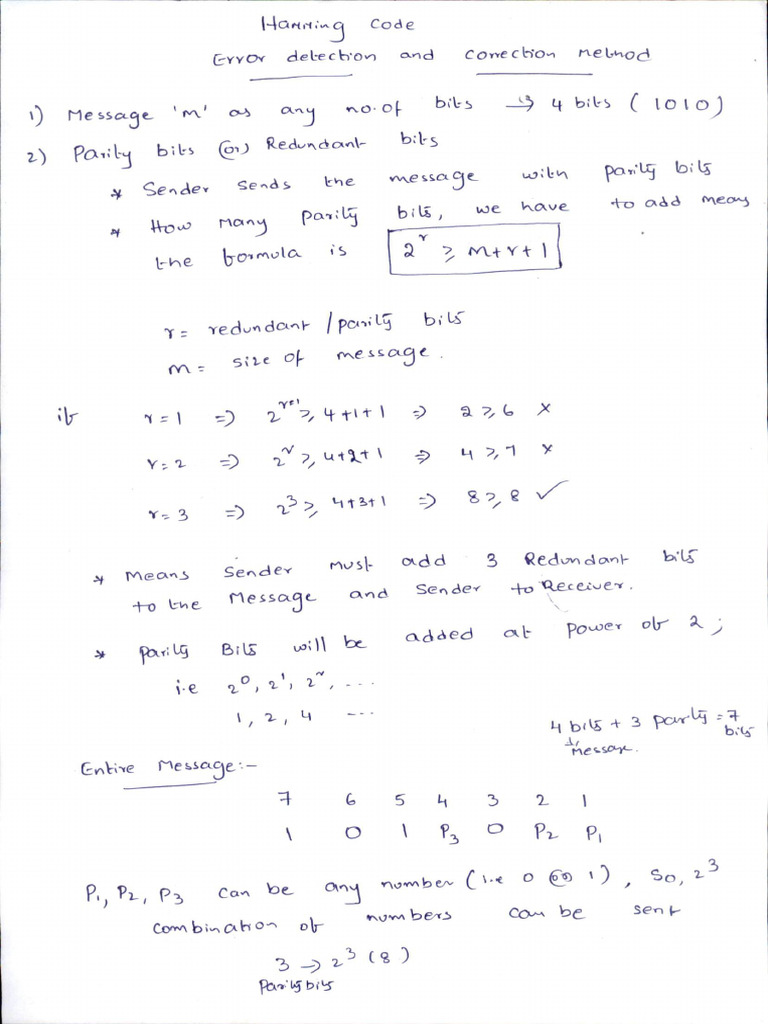 Hamming Code
Error detection and correction method
1) Message 'm' as any no. of bits → 4 bits (1010)
2) Parity bits (or) Redundant bits
* Sender sends the message with parity bits
* How many parity bits, we have to add means
the formula is 2^r ≥ m+r+1
r = redundant / parity bits
m = size of message.
if r=1 => 2^r=1 ≥ 4+1+1 => 2 ≥ 6 ×
r=2 => 2^2 ≥ 4+2+1 => 4 ≥ 7 ×
r=3 => 2^3 ≥ 4+3+1 => 8 ≥ 8 ✓
* Means Sender must add 3 Redundant bits
to the Message and Sender to Receiver.
* Parity Bits will be added at power of 2;
i.e 2^0, 2^1, 2^2, ...
1, 2, 4 ...
4 bits + 3 party = 7 bits
↓ Message.
Entire Message:-
7 6 5 4 3 2 1
1 0 1 P3 0 P2 P1
P1, P2, P3 can be any number (i.e 0 (or) 1), So, 2^3
combination of numbers can be sent
3 → 2^3 (8)
Parity bits